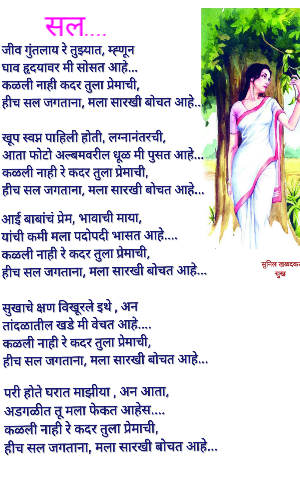 सल....
जीव गुंतलाय रे तुझ्यात, म्ह्णून
घाव हृदयावर मी सोसत आहे...
कळली नाही कदर तुला प्रेमाची,
हीच सल जगताना, मला सारखी बोचत आहे...
खूप स्वप्न पाहिली होती, लग्नानंतरची,
आता फोटो अल्बमवरील धूळ मी पुसत आहे...
कळली नाही रे कदर तुला प्रेमाची,
हीच सल जगताना, मला सारखी बोचत आहे...
आई बाबांचं प्रेम, भावाची माया,
यांची कमी मला पदोपदी भासत आहे....
कळली नाही रे कदर तुला प्रेमाची,
हीच सल जगताना, मला सारखी बोचत आहे...
सुखाचे क्षण विखूरले इथे , अन
तांदळातील खडे मी वेचत आहे....
कळली नाही रे कदर तुला प्रेमाची,
हीच सल जगताना, मला सारखी बोचत आहे...
परी होते घरात माझीया , अन आता,
अडगळीत तू मला फेकत आहेस....
कळली नाही रे कदर तुला प्रेमाची,
हीच सल जगताना, मला सारखी बोचत आहे...
सुनिल